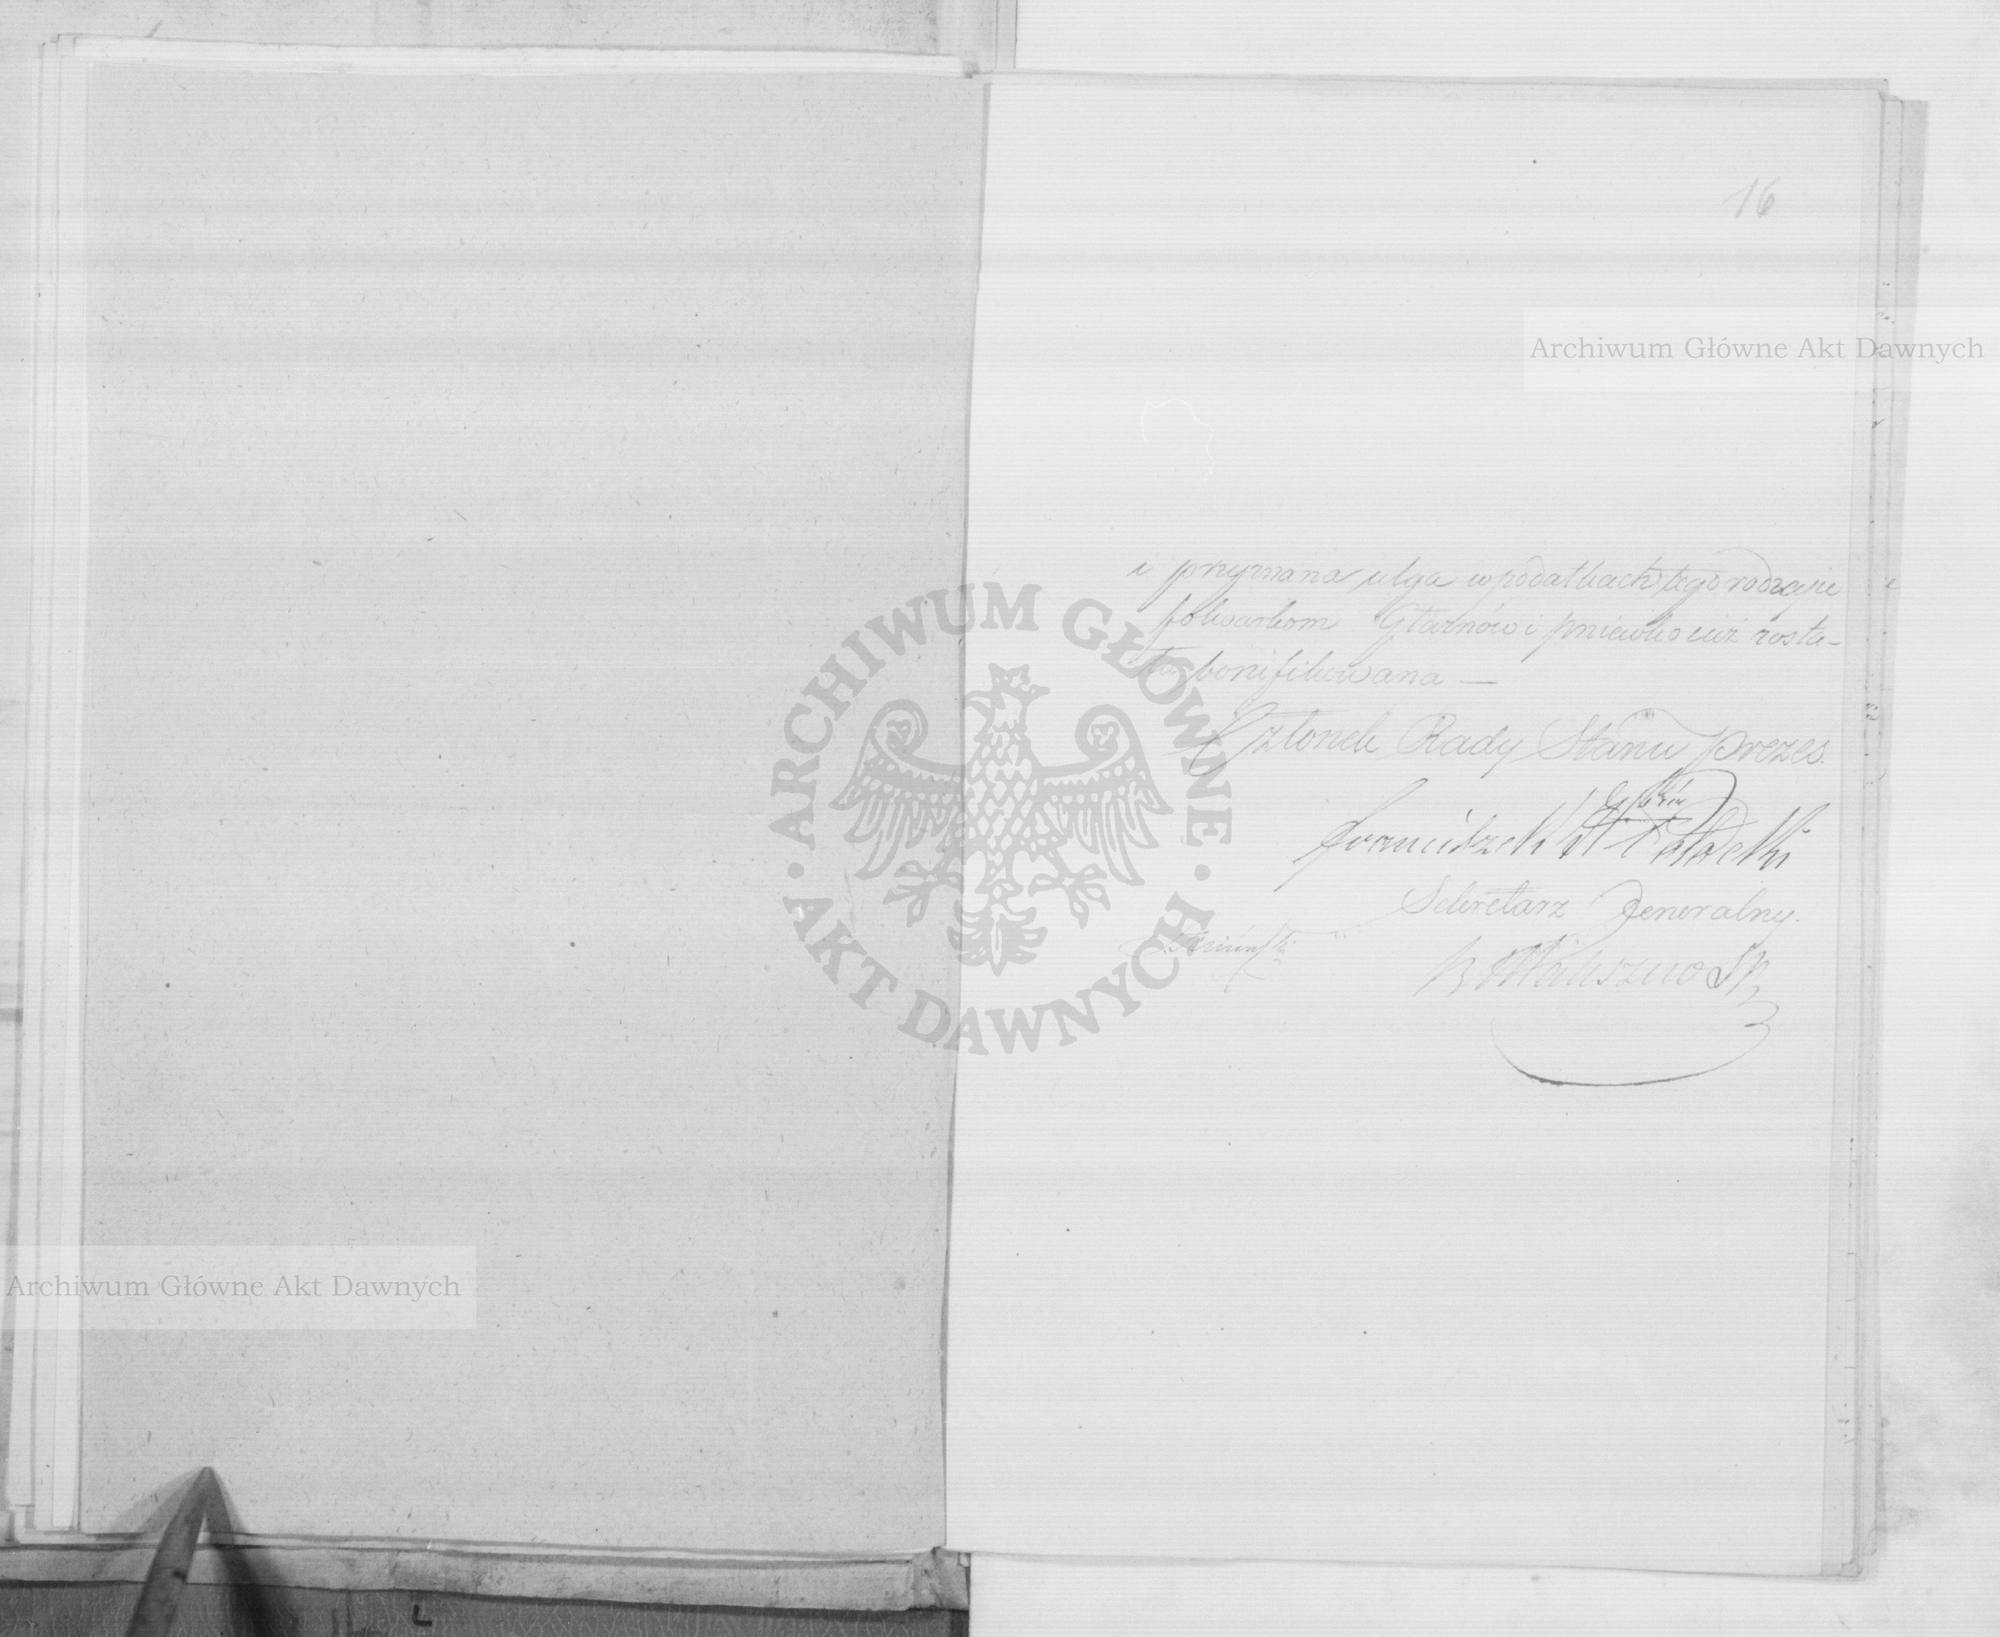 16
Archiwum Główne Akt Dawnych
i przyznana ulga w podatkach tego rodzaju
folwarkom Głaznów i pniewko już zosta-
ła bonifikowana —
Członek Rady Stanu Prezes.
Franciszek Potocki
Sekretarz Jeneralny.
ARCHIWUM GŁÓWNE
AKT DAWNYCH
Archiwum Główne Akt Dawnych